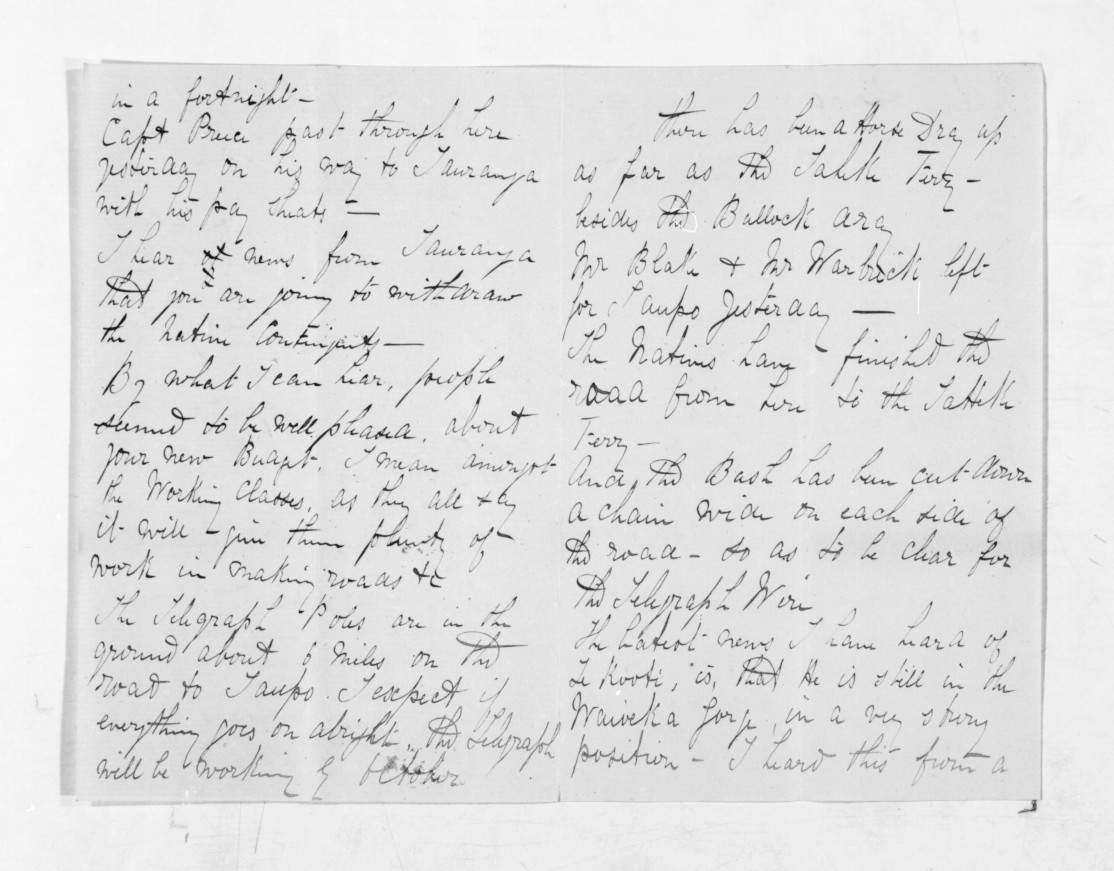 in a fortnight —
Capt Preece past through here
yesterday on his way to Tauranga
with his pay sheats —
I hear news from Tauranga
that you are going to withdraw
the Native Contingents —
By what I can hear, people
seemed to be well pleased, about
your new Budget. I mean amongst
the Working Classes, as they all say
it will give them plenty of
work in making roads &c
The Telegraph Poles are in the
ground about 6 miles on the
road to Taupo. I expect if
everything goes on alright, the Telegraph
will be working by October
there has been a Horse Dray up
as far as the Tahike Ferry —
besides the Bullock dray
Mr Blake & Mr Warbrick left
for Taupo Yesterday —
The Natives have finished the
road from here to the Ferry —
And the Bush has been cut down
a chain wide on each side of
the road — so as to be clear for
the Telegraph Wire
The latest news I have heard of
Te Kooti, is, that He is still in the
Waiveka Gorge, in a very strong
position — I heard this from a